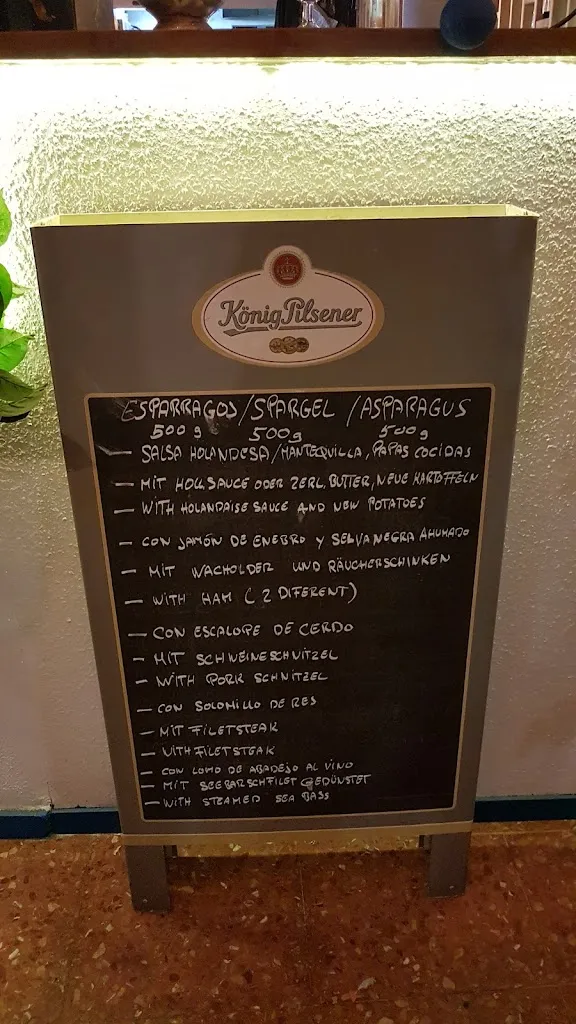 König Pilsener
ESPARRAGOS/SPARGEL/ASPARAGUS
500g 500g 500g
- SALSA HOLANDESA/MANTEQUILLA, PAPAS COCIDAS
- MIT HOLL.SAUCE ODER ZERL.BUTTER, NEUE KARTOFFELN
- WITH HOLANDAISE SAUCE AND NEW POTATOES
- CON JAMÓN DE ENEBRO Y SELVA NEGRA AHUMADO
- MIT WACHOLDER UND RÄUCHERSCHINKEN
- WITH HAM (2 DIFERENT)
- CON ESCALOPE DE CERDO
- MIT SCHWEINESCHNITZEL
- WITH PORK SCHNITZEL
- CON SOLOMILLO DE RES
- MIT FILETSTEAK
- WITH FILETSTEAK
- CON LOMO DE ABADEJO AL VINO
- MIT SEEBARSCHFILET GEDÜNSTET
- WITH STEAMED SEA BASS